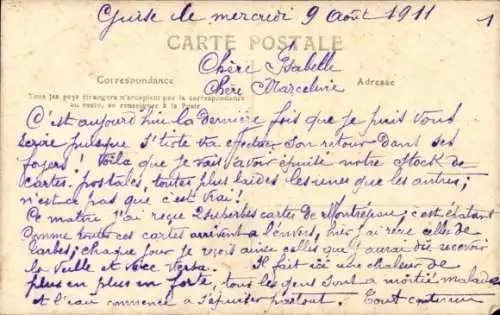 Guise le mercredi 9 Août 1911
1
CARTE POSTALE
Chère Isabelle
Correspondance
Chère Marceline
Adresse
Tous les pays étrangers n'acceptent pas la correspondance
au recto, se renseigner à la Poste
C'est aujourd'hui la dernière fois que je puis vous
écrire puisque va effectuer son retour dans ses
foyers! Voilà que je vais avoir épuisé notre stock de
cartes postales, toutes plus laides les unes que les autres;
n'est ce pas que c'est vrai!
Ce matin j'ai reçu 2 superbes cartes de Montréjeau; c'est
comme toutes ces cartes arrivent à l'envers, hier j'ai reçu celles de
Tarbes; chaque jour je reçois ainsi celles que j'aurai dû recevoir
la veille et vice versa. Il fait ici une chaleur de
plus en plus forte, tous les gens sont à moitié malades
et l'eau commence à s'épuiser partout. Tout